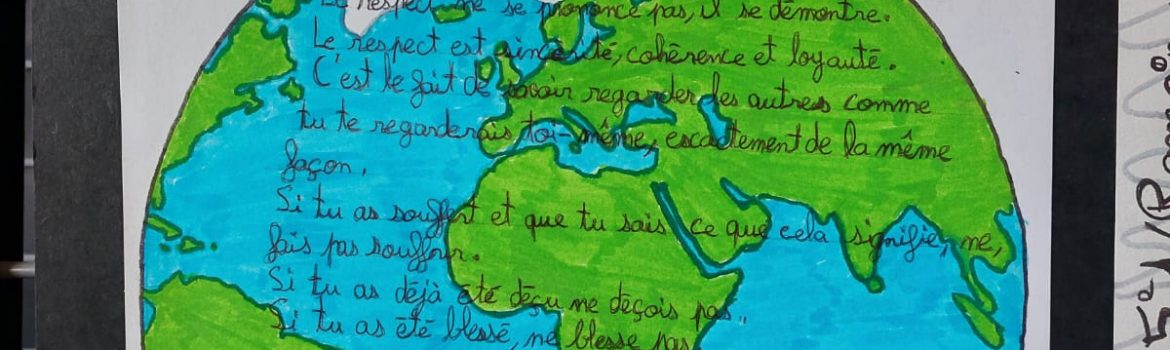 Le respect ne se prononce pas, il se démontre.
Le respect est sincérité, cohérence et loyauté.
C'est le fait de savoir regarder les autres comme
tu te regarderais toi-même, escactement de la même
façon.
Si tu as souffert et que tu sais ce que cela signifie, ne,
fais pas souffrir.
Si tu as déjà été déçu ne déçois pas..
Si tu as été blessé, ne blesse pas
5e